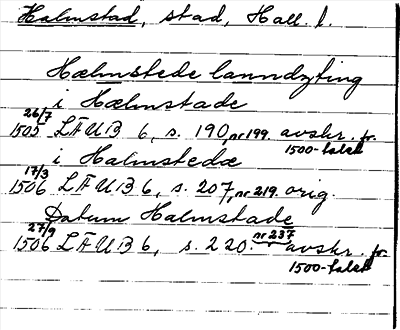 Halmstad, stad, Hall. l.
Hælmstede lanndzting
i Hælmstade
26/7
1505 LÄUB 6, s. 190, nr 199. avskr. fr.
1500-talet
i Halmstedæ
17/3
1506 LÄUB 6, s. 207, nr 219. orig.
Datum Halmstade
27/9
1506 LÄUB 6, s. 220. nr 237 avskr. fr.
1500-talet